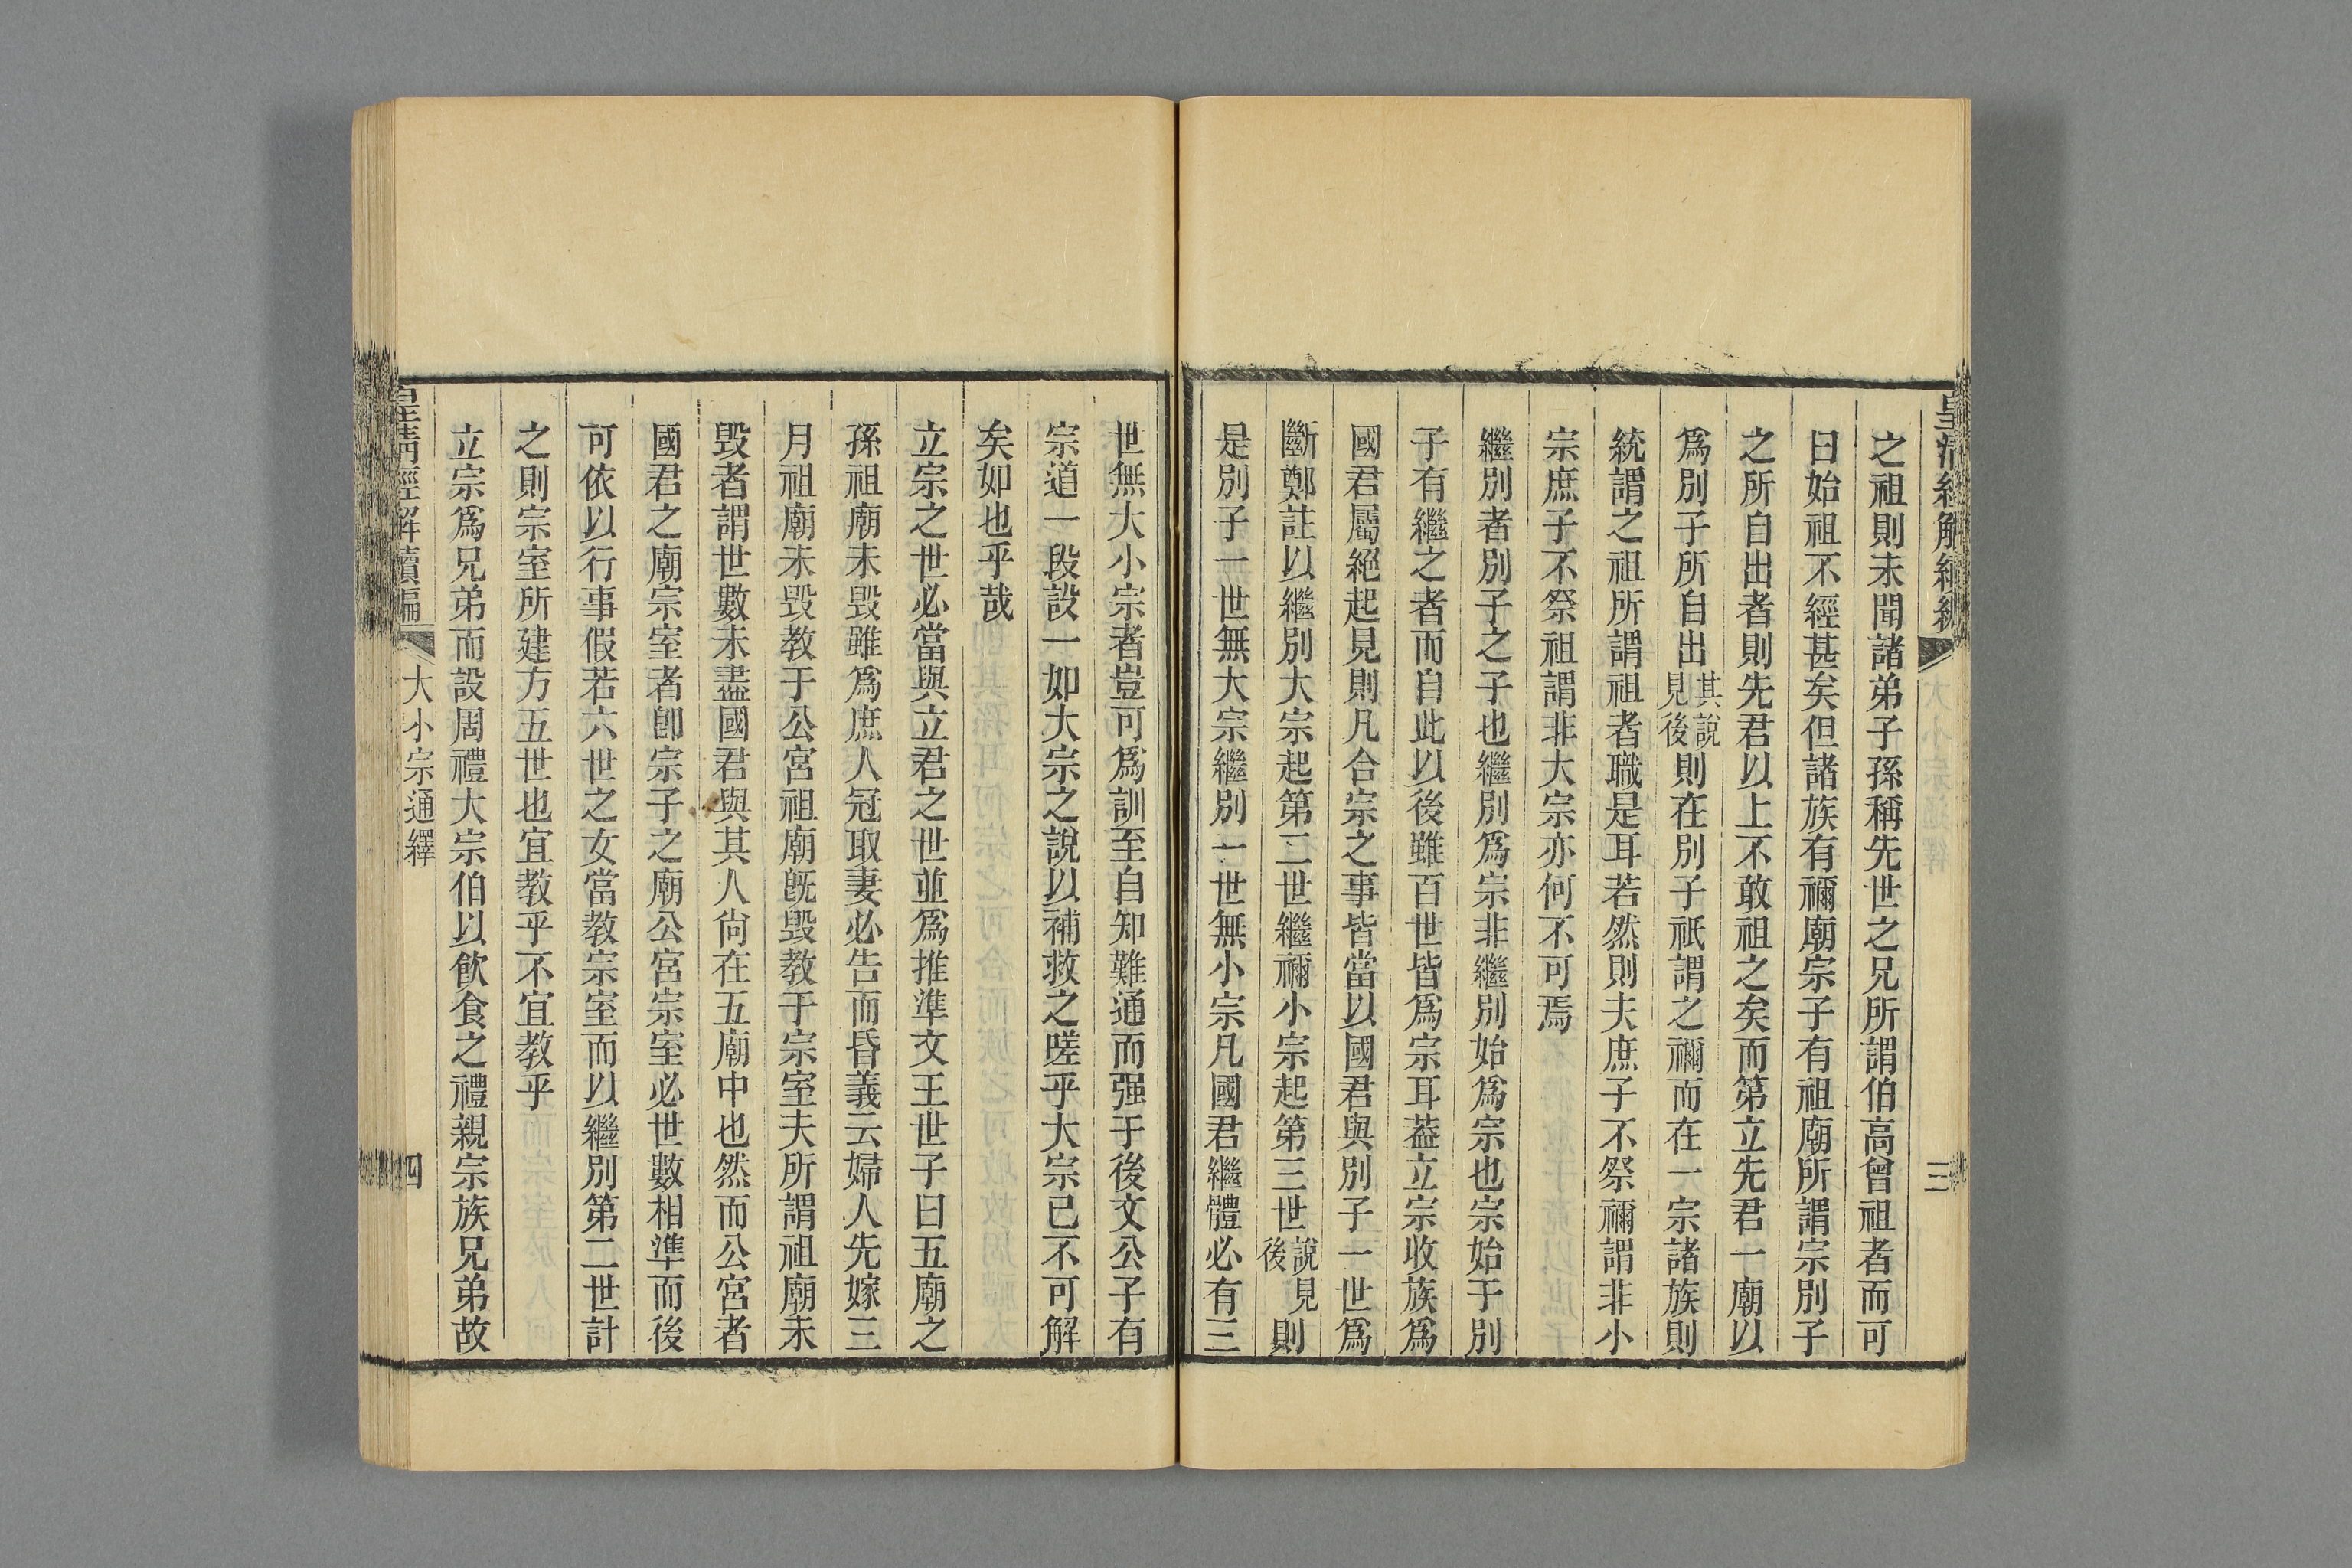 皇清經解續編
三
之祖則未聞諸弟子孫稱先世之兄所謂伯高曾祖者而可
曰始祖不經甚矣但諸族有禰廟宗子有祖廟所謂宗別子
之所自出者則先君以上不敢祖之矣而第立先君一廟以
爲別子所自出其說見後則在別子祇謂之禰而在一宗諸族則
統謂之祖所謂祖者職是耳若然則夫庶子不祭禰謂非小
宗庶子不祭祖謂非大宗亦何不可焉
繼別者別子之子也繼別爲宗非繼別始爲宗也宗始于別
子有繼之者而自此以後雖百世皆爲宗耳葢立宗收族爲
國君屬絕起見則凡合宗之事皆當以國君與別子一世爲
斷鄭註以繼別大宗起第二世繼禰小宗起第三世說見後則
是別子一世無大宗繼別一世無小宗凡國君繼體必有三
世無大小宗者豈可爲訓至自知難通而强于後文公子有
宗道一段設一如大宗之說以補救之嗟乎大宗已不可解
矣如也乎哉
立宗之世必當與立君之世並爲推準文王世子曰五廟之
孫祖廟未毀雖爲庶人冠取妻必告而昏義云婦人先嫁三
月祖廟未毀教于公宮祖廟旣毀教于宗室夫所謂祖廟未
毀者謂世數未盡國君與其人尙在五廟中也然而公宮者
國君之廟宗室者卽宗子之廟公宮宗室必世數相準而後
可依以行事假若六世之女當教宗室而以繼別第二世計
之則宗室所建方五世也宜教乎不宜教乎
立宗爲兄弟而設周禮大宗伯以飮食之禮親宗族兄弟故
皇清經解續編
大小宗通繹
四